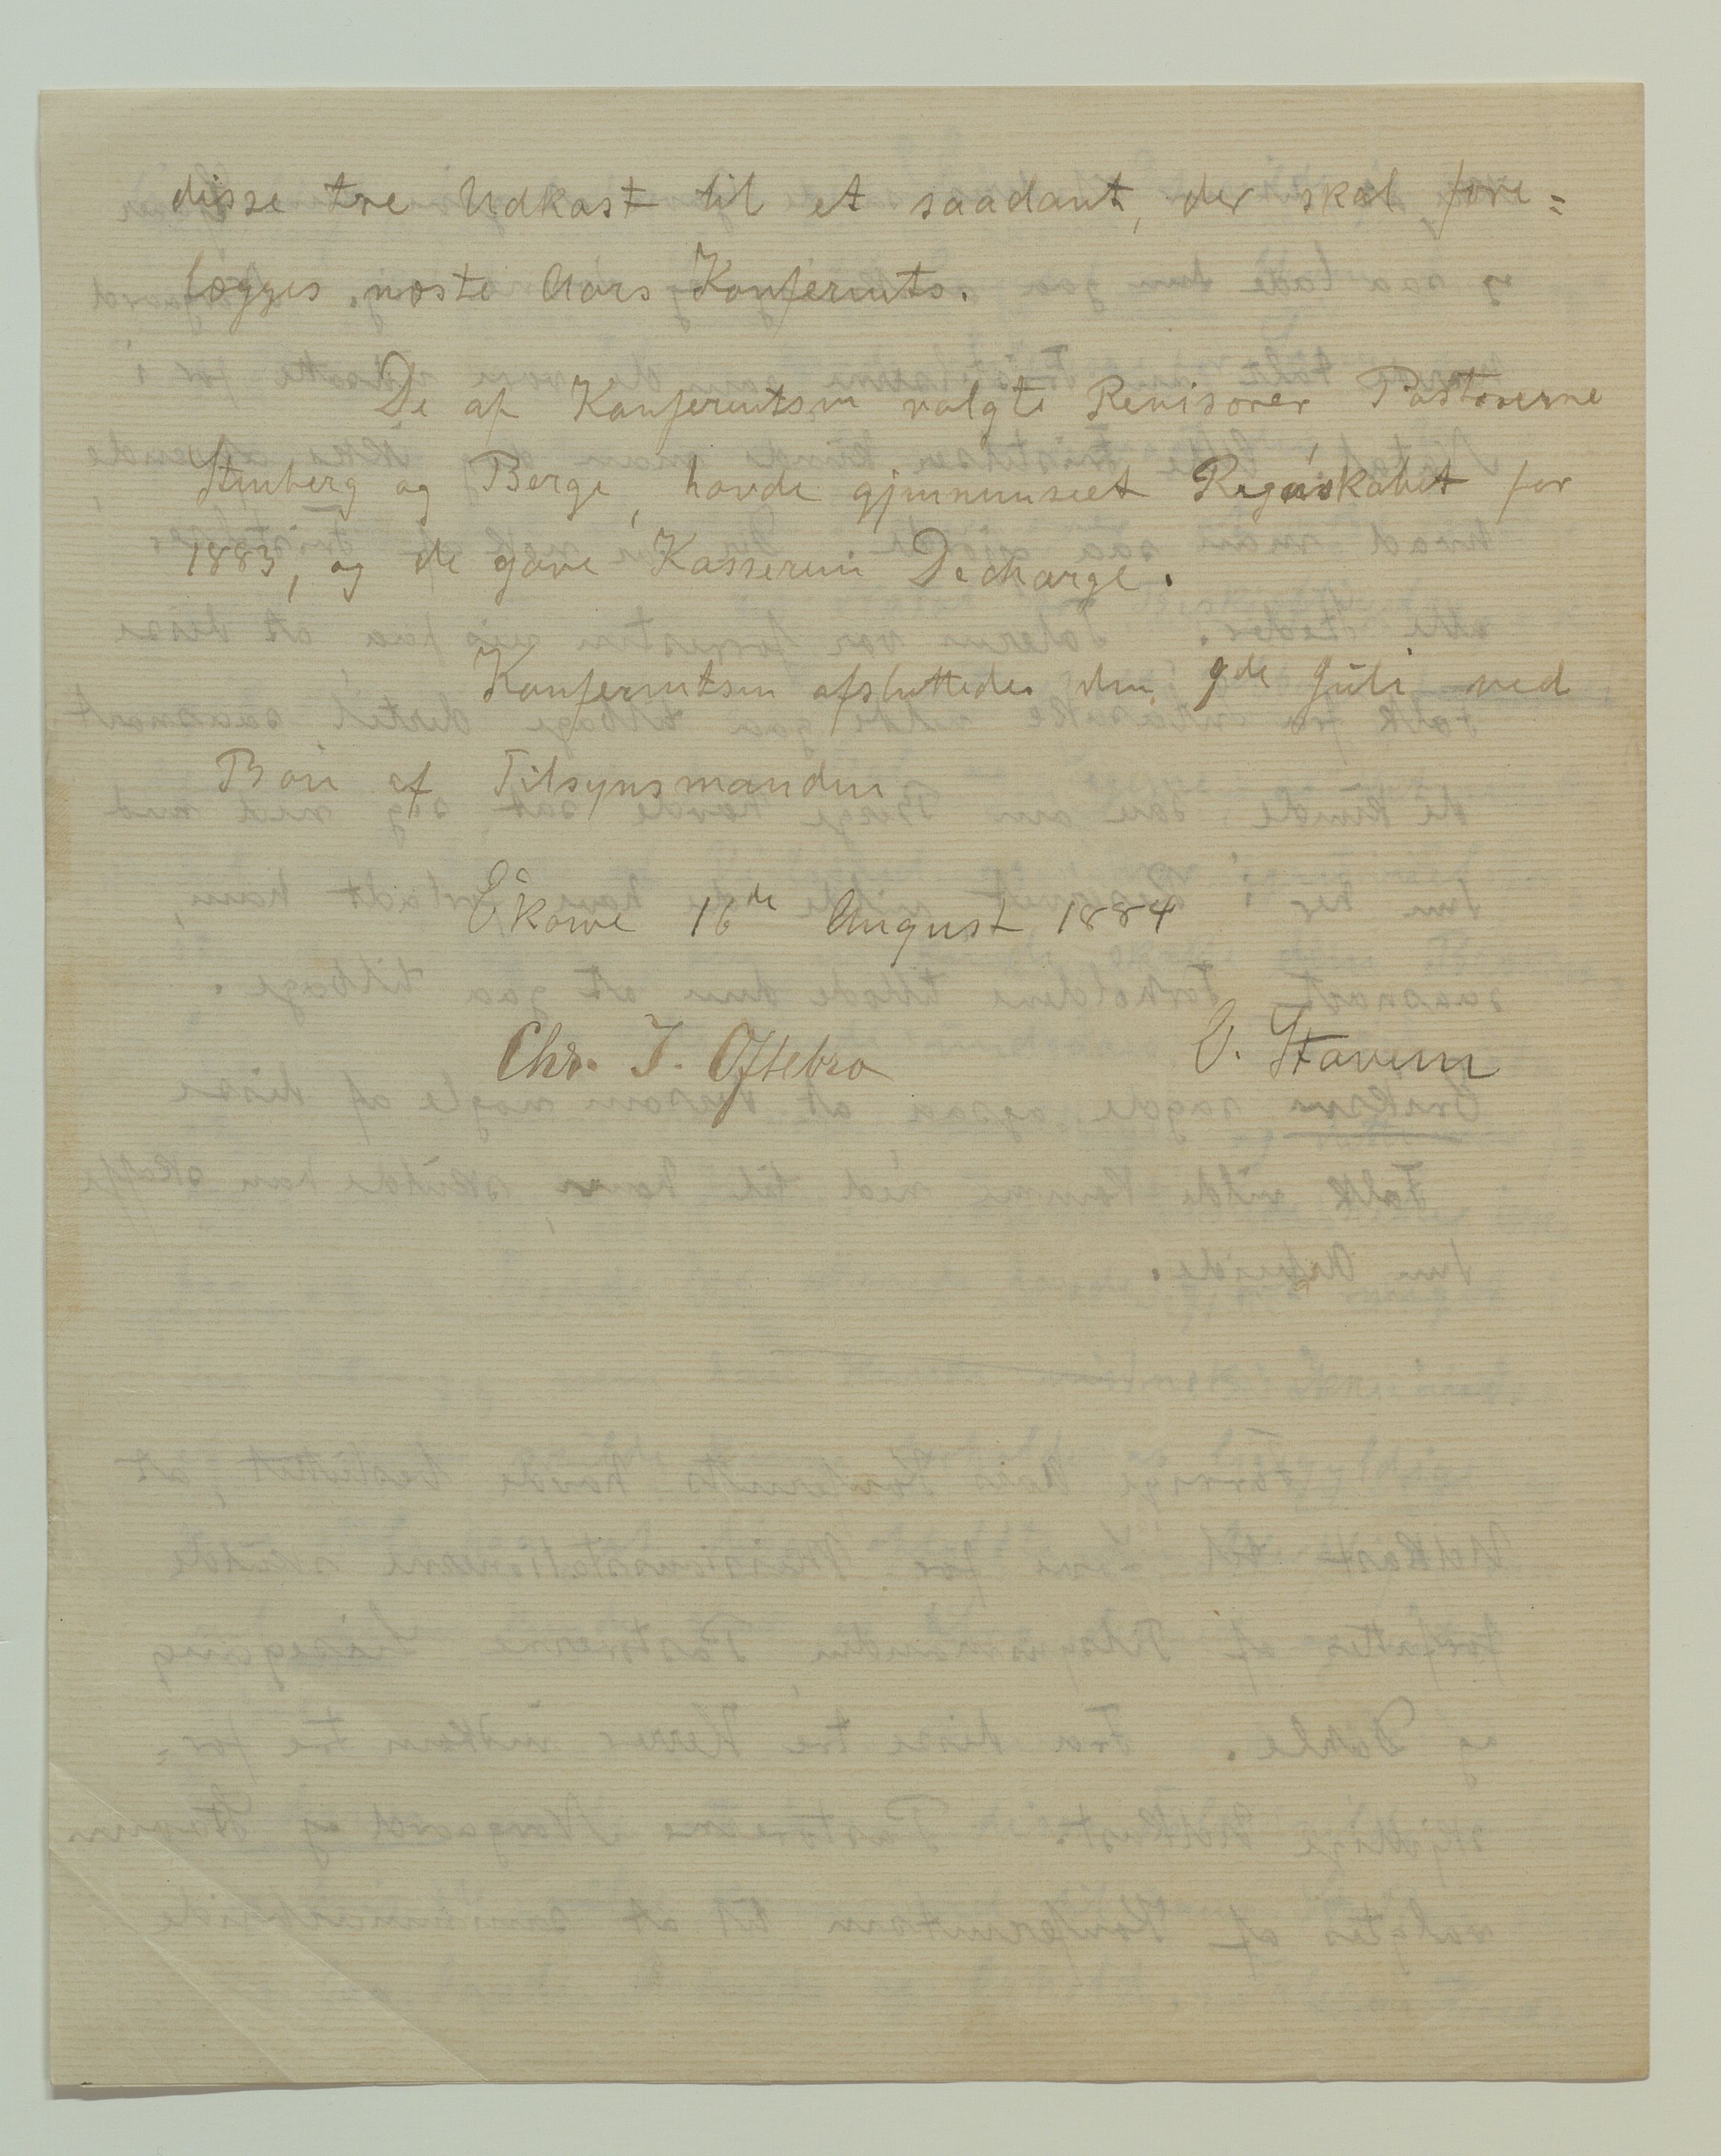 disse tre Udkast til et saadant, der skal fore=
lægges næste Aars Konferents.
De af Konferentsen valgte Revisorer Pastorerne
Stenberg og Berge, havde gjennemseet Regnskabet for
1883, og de gave Kassereren Decharge.
Konferentsen afsluttedes den 9de Juli med
Bøn af Tilsynsmanden
Ekowe 16de August 1884
Chr. T. Oftebro O. Stavem